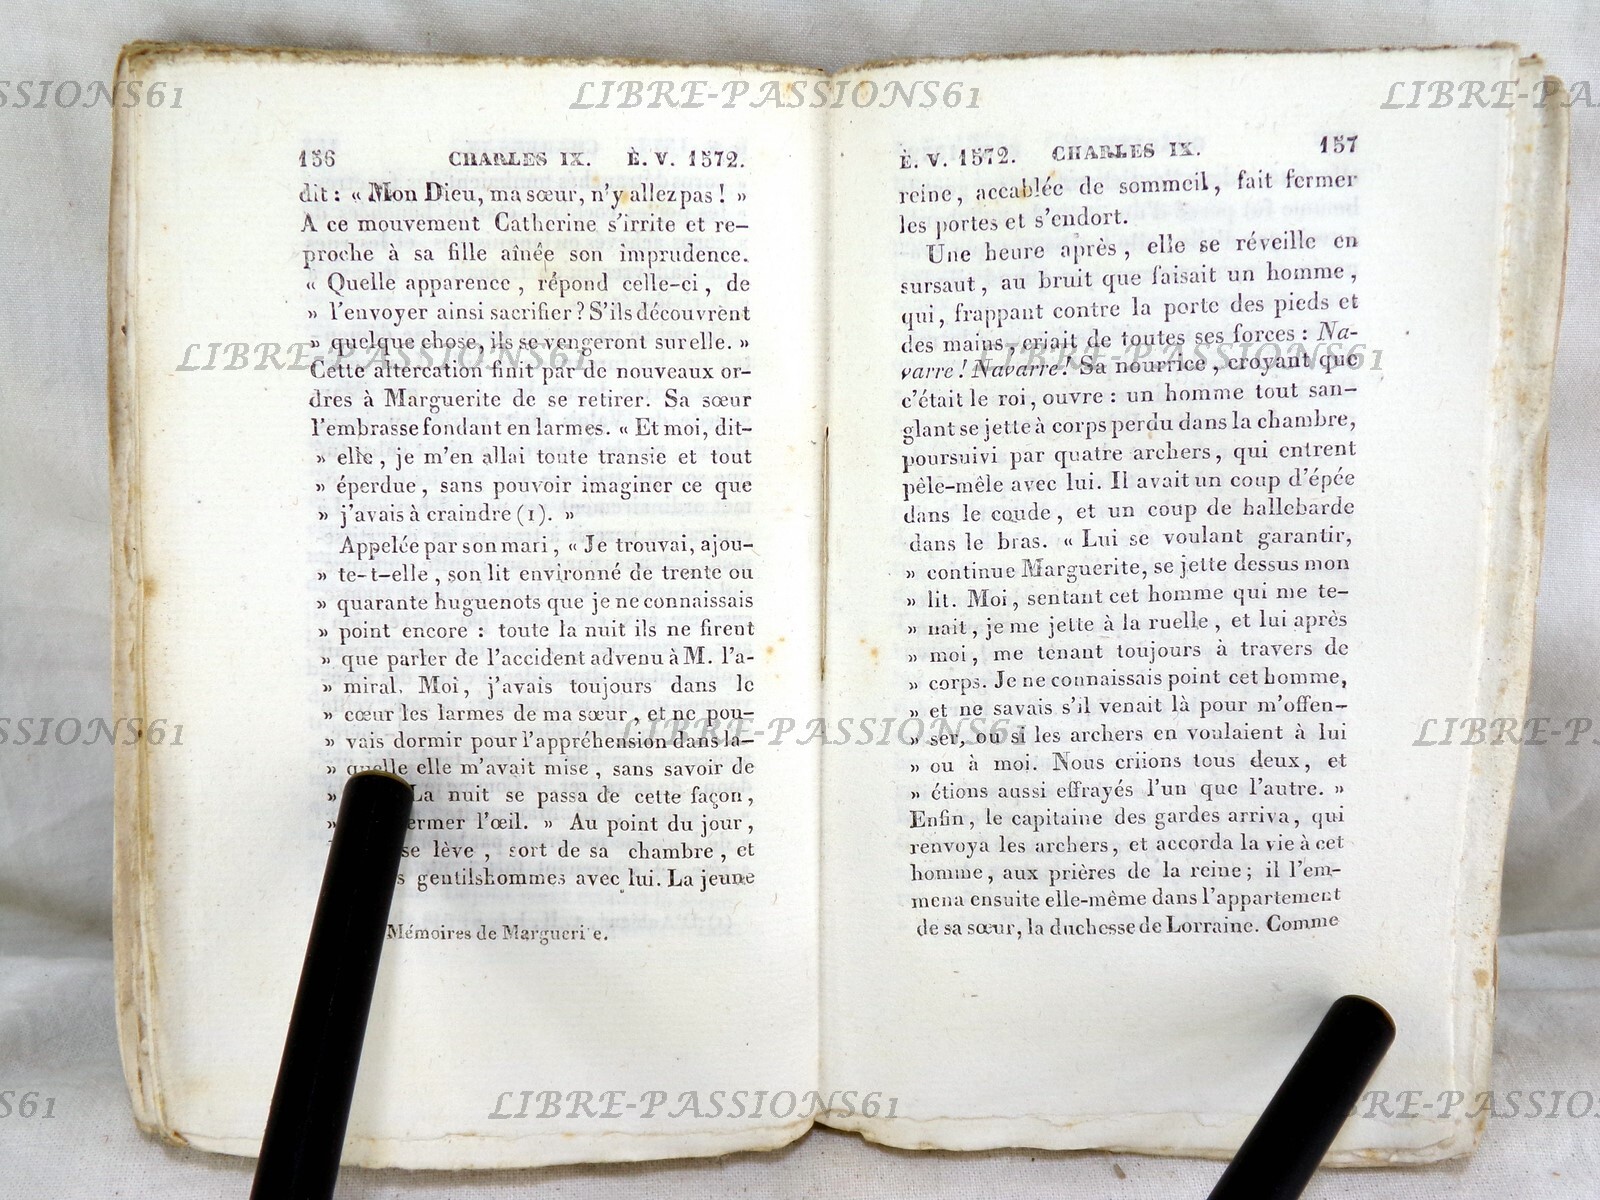 156 CHARLES IX. È. V. 1572.
dit : « Mon Dieu, ma sœur, n'y allez pas ! »
A ce mouvement Catherine s'irrite et re-
proche à sa fille aînée son imprudence.
« Quelle apparence , répond celle-ci , de
» l'envoyer ainsi sacrifier ? S'ils découvrent
» quelque chose, ils se vengeront sur elle. »
Cette altercation finit par de nouveaux or-
dres à Marguerite de se retirer. Sa sœur
l'embrasse fondant en larmes. « Et moi, dit-
» elle , je m'en allai toute transie et tout
» éperdue , sans pouvoir imaginer ce que
» j'avais à craindre (1). »
Appelée par son mari , « Je trouvai, ajou-
» te-t-elle , son lit environné de trente ou
» quarante huguenots que je ne connaissais
» point encore : toute la nuit ils ne firent
» que parler de l'accident advenu à M. l'a-
» miral. Moi, j'avais toujours dans le
» cœur les larmes de ma sœur , et ne pou-
» vais dormir pour l'appréhension dans la-
» quelle elle m'avait mise , sans savoir de
» La nuit se passa de cette façon ,
» ermer l'œil. » Au point du jour ,
se lève , sort de sa chambre , et
s gentilshommes avec lui. La jeune
Mémoires de Margueri e.
È. V. 1572. CHARLES IX. 157
reine, accablée de sommeil , fait fermer
les portes et s'endort.
Une heure après , elle se réveille en
sursaut , au bruit que faisait un homme ,
qui , frappant contre la porte des pieds et
des mains, criait de toutes ses forces : Na-
varre ! Navarre ! Sa nourrice , croyant que
c'était le roi , ouvre : un homme tout san-
glant se jette à corps perdu dans la chambre,
poursuivi par quatre archers , qui entrent
pêle-mêle avec lui. Il avait un coup d'épée
dans le coude , et un coup de hallebarde
dans le bras. « Lui se voulant garantir,
» continue Marguerite, se jette dessus mon
» lit. Moi , sentant cet homme qui me te-
» nait , je me jette à la ruelle , et lui après
» moi , me tenant toujours à travers de
» corps. Je ne connaissais point cet homme,
» et ne savais s'il venait là pour m'offen-
» ser, ou si les archers en voulaient à lui
» ou à moi. Nous criions tous deux , et
» étions aussi effrayés l'un que l'autre. »
Enfin , le capitaine des gardes arriva , qui
renvoya les archers , et accorda la vie à cet
homme , aux prières de la reine ; il l'em-
mena ensuite elle-même dans l'appartement
de sa sœur, la duchesse de Lorraine. Comme
LIBRE-PASSIONS61